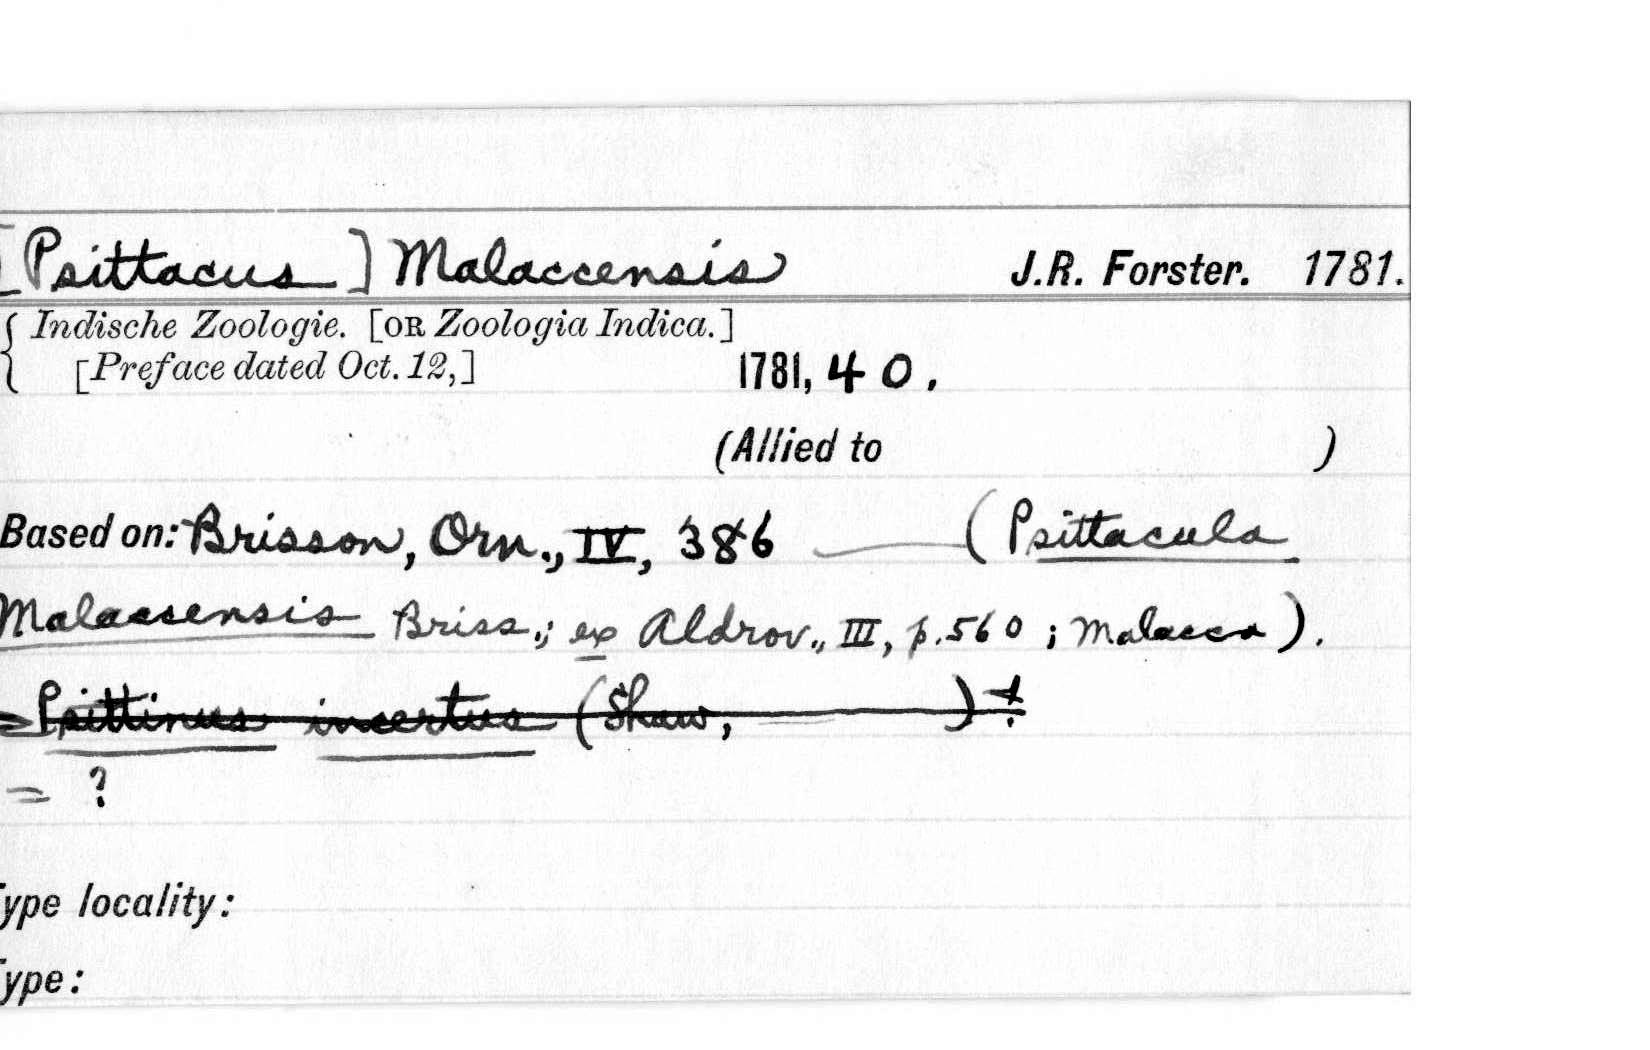 [Psittacus] Malaccensis J.R. Forster. 1781.
{ Indische Zoologie. [OR Zoologia Indica.]
[Preface dated Oct. 12,] 1781, 40.
(Allied to )
Based on: Brisson, Orn., IV, 386 — (Psittacula
Malaccensis Briss.; ex Aldrov., III, p.560; Malacca).
= Psittinus incertus (Shaw, )?
= ?
Type locality:
Type: